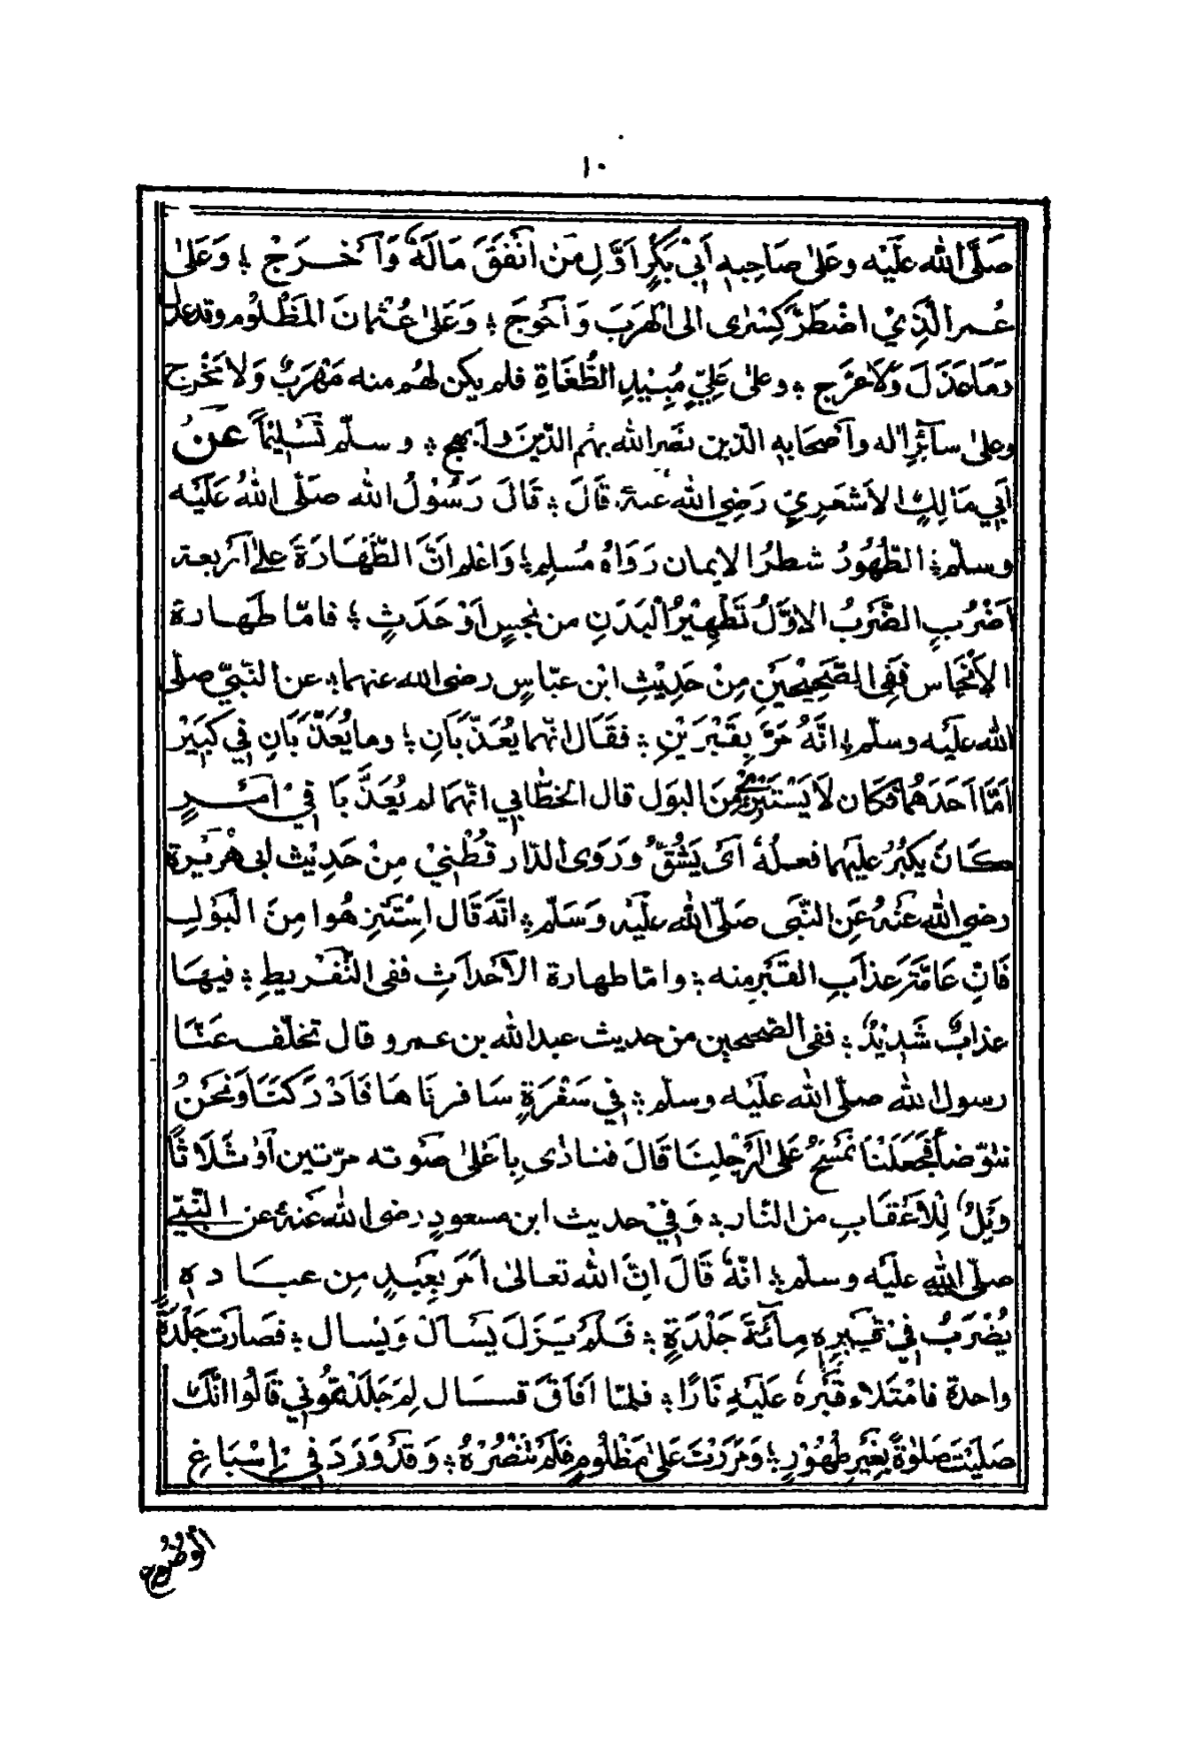 ١٠
صَلَّى الله عَلَيْه وعَلىٰ صَاحِبِه أَبِيْ بَكْرٍ اَوَّلِ مَنْ اَنْفَقَ مَالَهٗ وَاَخْرَجْ ؛ وَعَلىٰ
عُمر الَّذِيْ اضْطَرَّ كِسْرٰى الى الْهَرَبَ وَاَحْوَجَ ؛ وَعَلىٰ عُثمانَ المَظْلُوْم وقد عدل
وَمَا عَذَلَ وَلَا عَرَّج ؛ وعلىٰ عَلِيٍّ مُبِيْدِ الطُّغَاةِ فلم يكن لهُم منه مَهْرَبٌ وَلَا مَخْرج
وعلىٰ سآئِرِ اٰله وأصْحَابه الذين نصَر الله بهُم الدّينَ وابهج ؛ وسلّم تَسْلِيْماً عَنْ
اَبِي مَالِكٍ الاَشعَرِيّ رَضِيَ الله عنه قَالَ ؛ قَالَ رَسُوْلُ الله صَلّى اللهُ عَلَيْه
وسلّم ؛ الطُّهُورُ شطرُ الايمان رَوَاهُ مُسلِم ؛ وَاعْلم اَنَّ الطَّهَارَةَ عَلىٰ أربعة
اَضْرُبٍ الضَّرْبُ الاوّلُ تَطْهِيْرُ الْبَدَنِ من نجسٍ اَوْ حَدَثٍ ؛ فامّا طَهارة
الأنْجَاس فَفِى الصَّحِيْحَيْنِ مِنْ حَدِيْثِ ابن عبّاسٍ رضى الله عنهما ؛ عن النّبيّ صلّى
الله عليه وسلّم ؛ انَّهُ مَرَّ بِقَبْرَيْنِ ؛ فقَالَ انّهما يُعَذَّبَانِ ؛ وما يُعَذَّبَانِ فِي كَبِيْر
اَمَّا اَحَدَهُمَا فَكَان لَا يَسْتَنْزِهُ مِنَ البَول قال الخطّابي انّهمَا لم يُعَذَّبَا فِيْ اَمْرٍ
كَانَ يَكْبُرُ عليهما فعلُهٗ اَىْ يَشُقُّ وَرَوَى الدّار قُطْنِيْ مِنْ حَدِيْث ابى هُرَيْرة
رضِي الله عَنْهُ عَنِ النّبى صَلّى الله عليْه وَسَلّم ؛ انّهَ قَال اسْتَنْزِهُوا مِنَ الْبَوْلِ
فَانّ عَامّةَ عَذابِ القَبْرِ منه ؛ وامّا طهارة الاَحْدَاثِ ففى التّفْريطِ ؛ فيهَا
عذابٌ شَدِيْدٌ ؛ ففى الصّحيحين من حديث عبد الله بن عمرو قال تخلّف عَنّا
رسول الله صلّى الله عليْه وسلّم ؛ فِي سَفْرَةٍ سَافرنَاهَا فَاَدْرَكَنَا وَنَحْنُ
نتوّضأ فجعَلْنَا نمْسَحُ عَلىٰ اَرْجُلِنَا قَالَ فنادٰى بِاَعْلىٰ صَوته مرّتين اَوْ ثَلَاثًا
وَيْلٌ لِلْأَعْقَابِ من النّار ؛ وَفِيْ حديث ابن مسعودٍ رضى الله عَنهُ عن النّبيّ
صلّى الله عليْه وسلّم ؛ انّهٗ قَالَ اِنّ الله تعالىٰ اَمَر بِعَبْدٍ مِن عبَادِهٖ
يُضْرَبُ فِيْ قبرِهٖ مِائَةَ جَلْدَةٍ ؛ فَلَمْ يَزَلْ يَسْأل وَيَسْأل ؛ فصَارَت جَلْدَةً
واحدة فامْتَلاء قَبْرهٗ عَلَيْهِ نَارًا ؛ فلمّا اَفَاقَ قَال لِمَ جَلَدْتُمُونِي قَالُوا انّكَ
صَلّيْتَ صَلوٰةً بِغَيْرِ طُهُوْرٍ ؛ وَمَرَرْتَ عَلىٰ مَظْلُومٍ فَلَمْ تَنْصُرْهُ ؛ وَقَدْ وَرَدَ فِي اِسْبَاغِ
الْوُضُوءِ